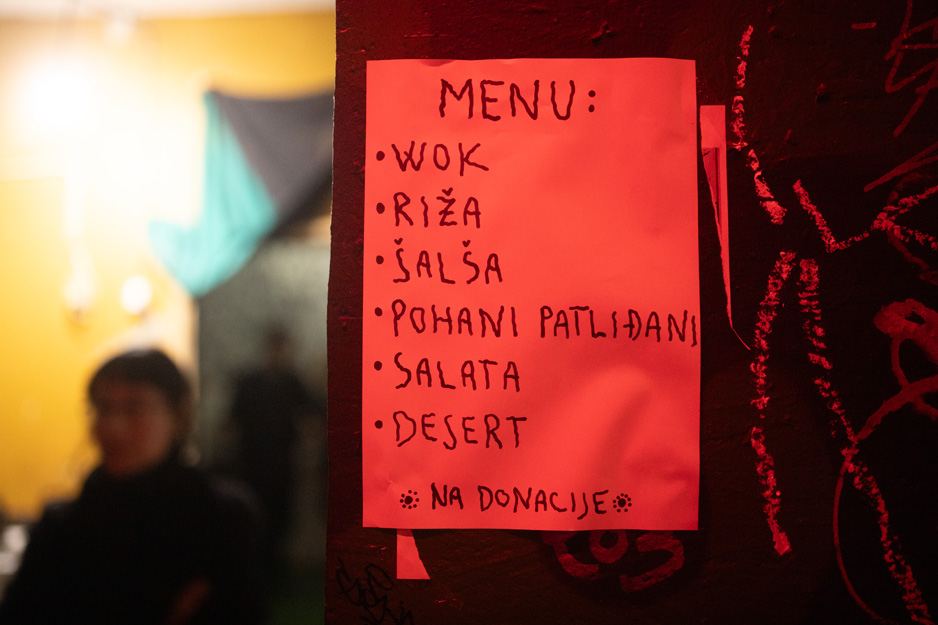 MENU:
•WOK
•RIŽA
•ŠALŠA
•POHANI PATLIĐANI
•SALATA
•DESERT
NA DONACIJE